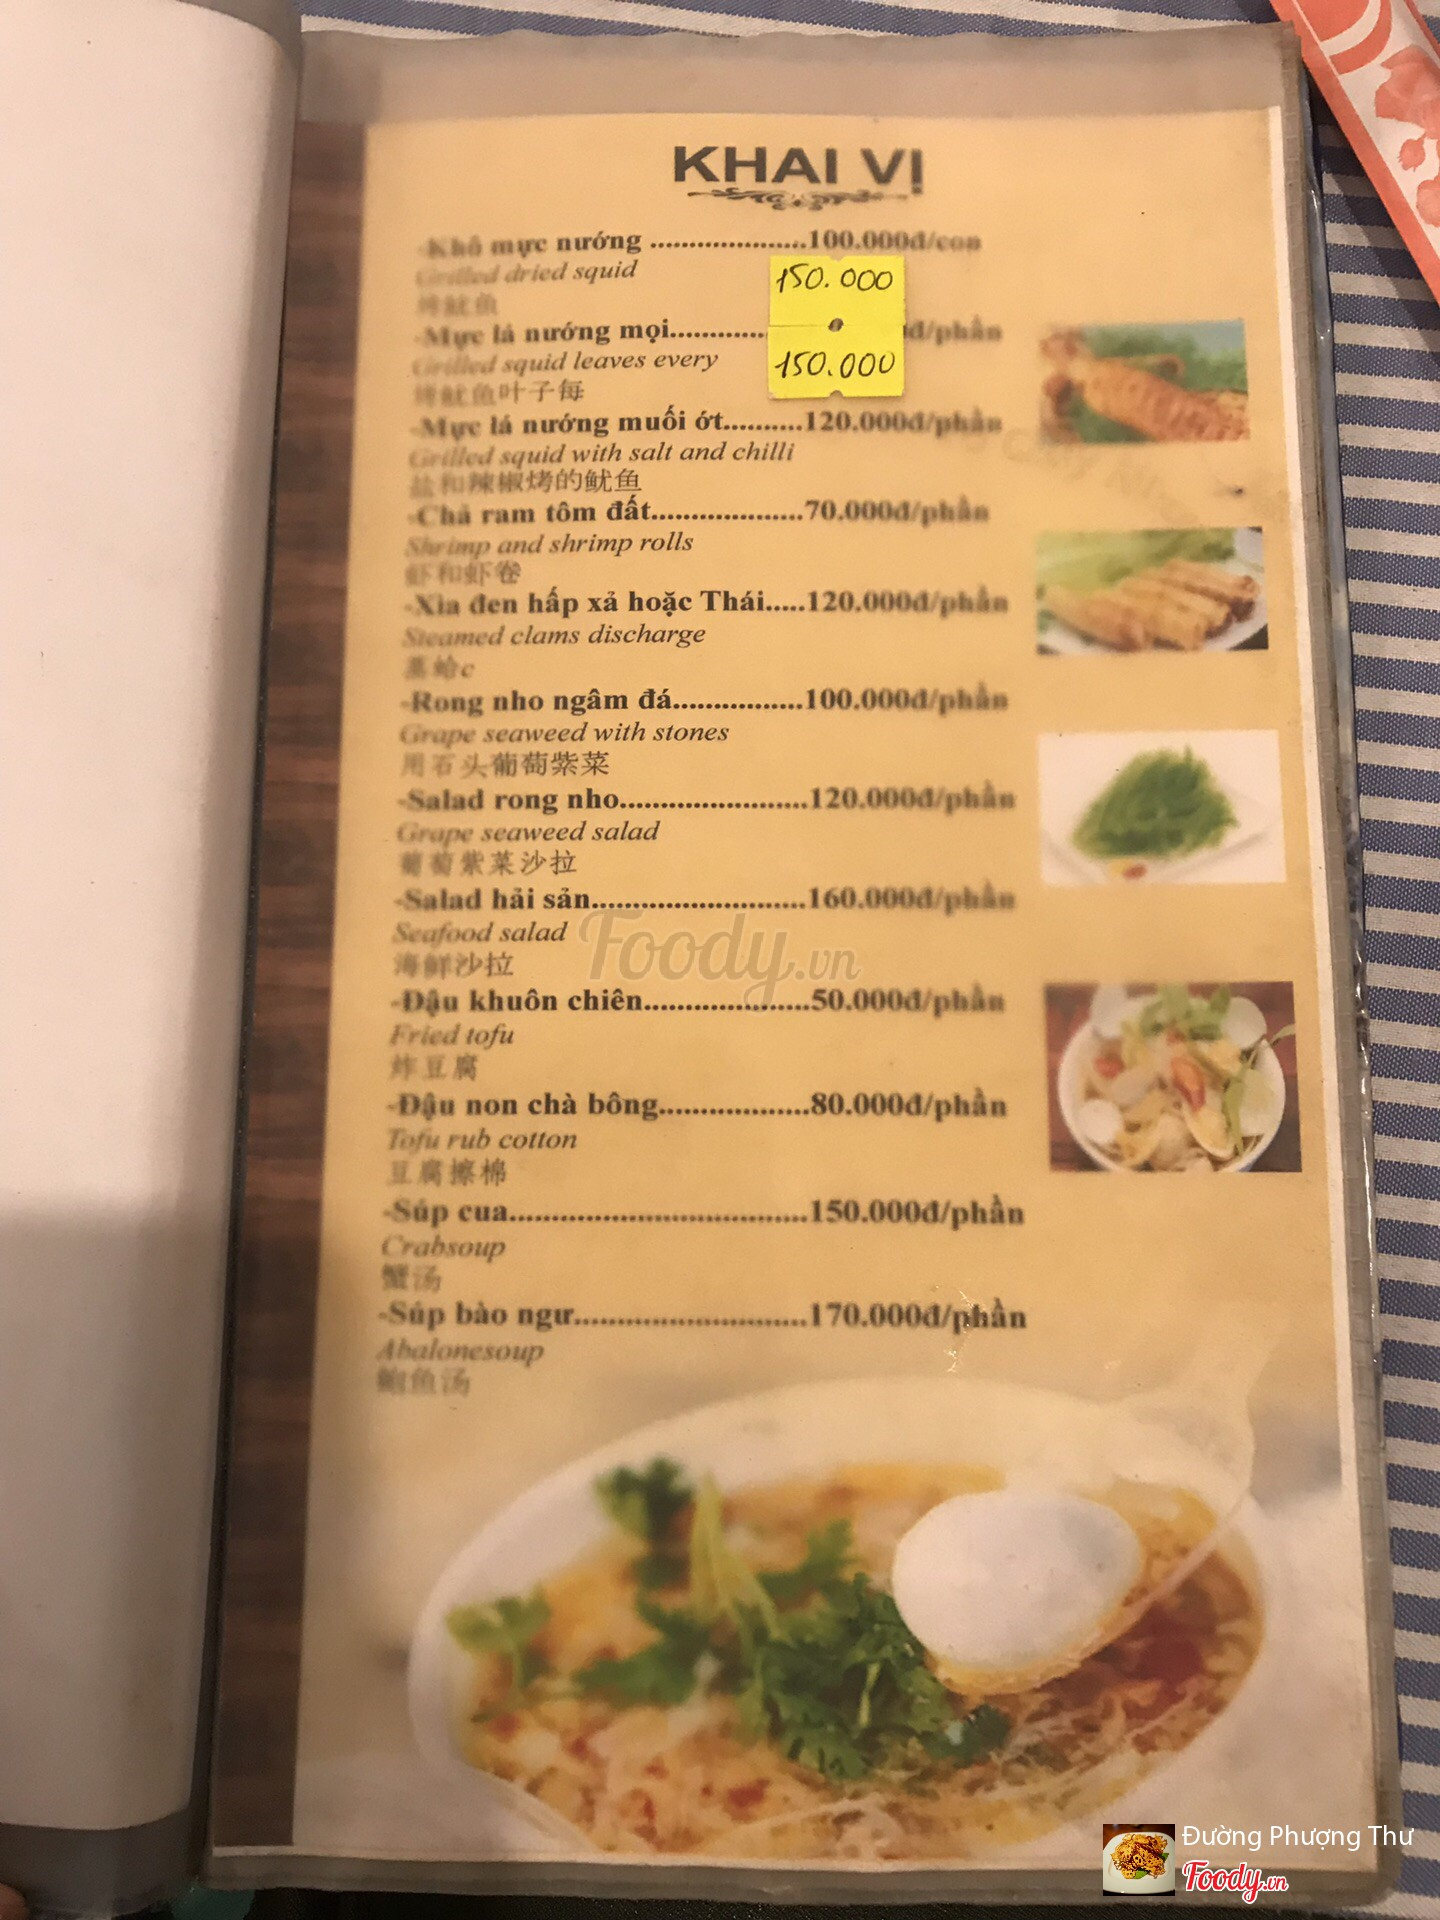 KHAI VỊ
-Khô mực nướng ....................100.000đ/con
Grilled dried squid
烤鱿鱼
150.000
-Mực lá nướng mọi............ đ/phần
Grilled squid leaves every
150.000
烤鱿鱼叶子每
-Mực lá nướng muối ớt..........120.000đ/phần
Grilled squid with salt and chilli
盐和辣椒烤的鱿鱼
-Chả ram tôm đất...................70.000đ/phần
Shrimp and shrimp rolls
虾和虾卷
-Xìa đen hấp xả hoặc Thái.....120.000đ/phần
Steamed clams discharge
蒸蛤c
-Rong nho ngâm đá................100.000đ/phần
Grape seaweed with stones
用石头葡萄紫菜
-Salad rong nho.......................120.000đ/phần
Grape seaweed salad
葡萄紫菜沙拉
-Salad hải sản..........................160.000đ/phần
Seafood salad
海鲜沙拉
Foody.vn
-Đậu khuôn chiên....................50.000đ/phần
Fried tofu
炸豆腐
-Đậu non chà bông..................80.000đ/phần
Tofu rub cotton
豆腐擦棉
-Súp cua...................................150.000đ/phần
Crabsoup
蟹汤
-Súp bào ngư...........................170.000đ/phần
Abalonesoup
鲍鱼汤
Đường Phượng Thư
Foody.vn